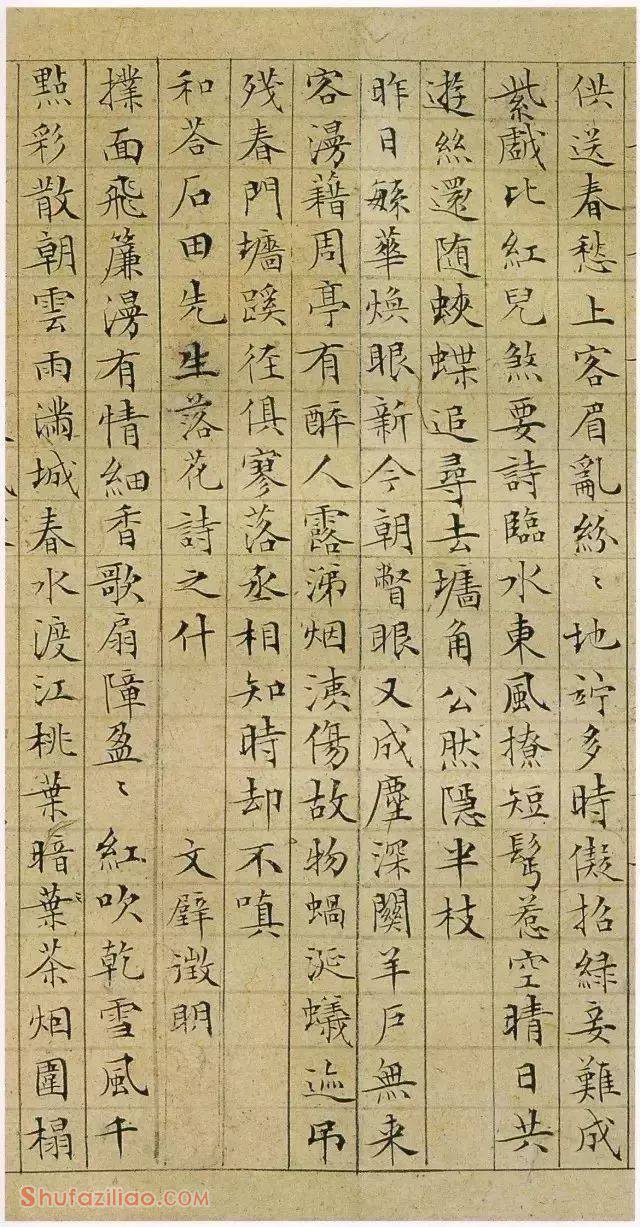 供送春愁上客眉亂紛〻地竚多時儗招綠妾難成
紫戲比紅兒煞要詩臨水東風撩短鬢惹空晴日共
遊絲還随蛺蝶追尋去墻角公然隱半枝
昨日繁華煥眼新今朝瞥眼又成塵深關羊戶無来
客漫藉周亭有醉人露涕烟洟傷故物蝸涎蟻迹吊
残春門墻蹊徑俱寥落丞相知時却不嗔
和荅石田先生落花詩之什 文壁徵明
撲面飛簾漫有情細香歌扇障盈〻紅吹乾雪風千
點彩散朝雲雨滿城春水渡江桃葉暗茶烟圍榻
Shufaziliao.com